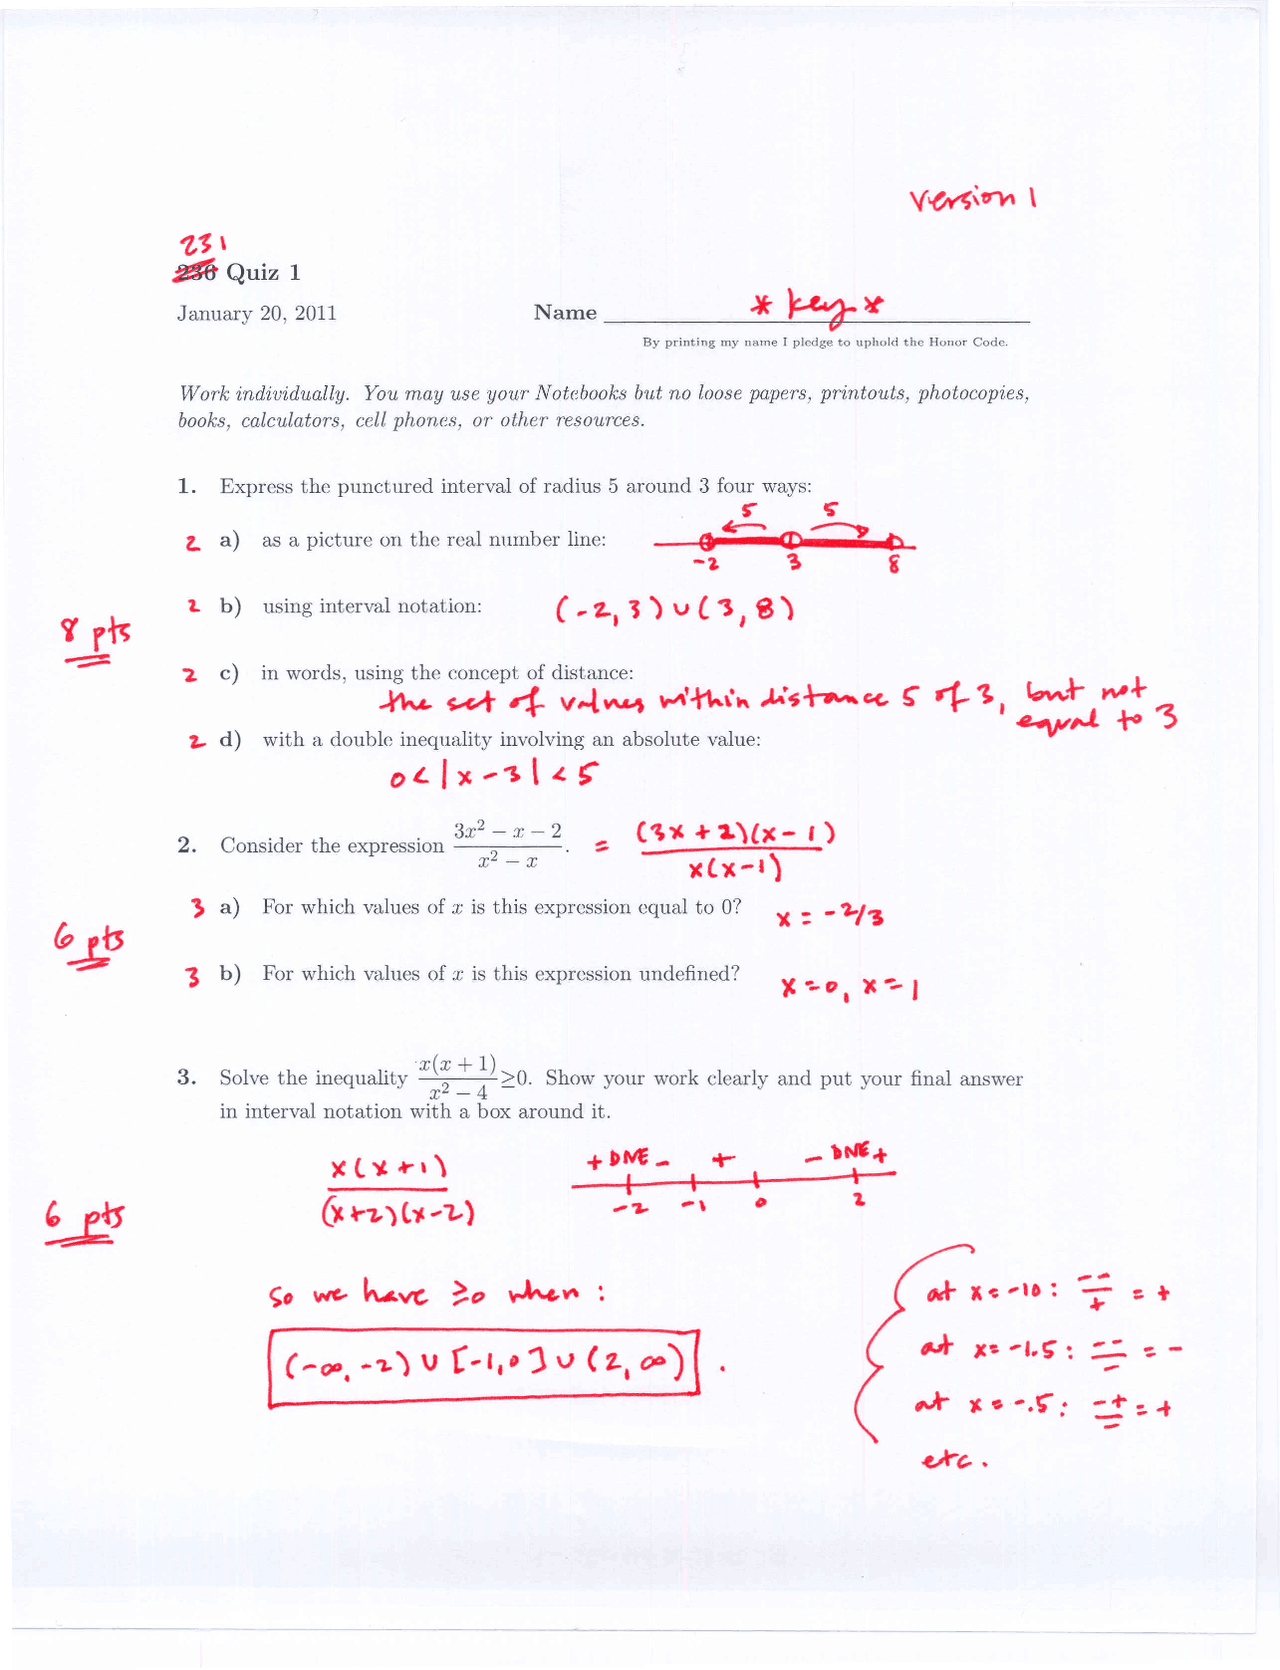 version 1
231
236 Quiz 1
January 20, 2011 Name * key *
By printing my name I pledge to uphold the Honor Code.
Work individually. You may use your Notebooks but no loose papers, printouts, photocopies,
books, calculators, cell phones, or other resources.
1. Express the punctured interval of radius 5 around 3 four ways:
5 5
2 a) as a picture on the real number line:
-2 3 8
2 b) using interval notation: (-2,3)∪(3,8)
8 pts
2 c) in words, using the concept of distance:
the set of values within distance 5 of 3, but not
equal to 3
2 d) with a double inequality involving an absolute value:
0<|x-3|<5
2. Consider the expression (3x² − x − 2)/(x² − x). = (3x+2)(x-1)/x(x-1)
3 a) For which values of x is this expression equal to 0? x = -2/3
6 pts
3 b) For which values of x is this expression undefined? x=0, x=1
3. Solve the inequality x(x + 1)/(x² − 4) ≥0. Show your work clearly and put your final answer
in interval notation with a box around it.
x(x+1)/(x+2)(x-2) + DNE - + - DNE +
-2 -1 0 2
6 pts
so we have ≥0 when:
(-∞,-2)∪[-1,0]∪(2,∞).
at x=-10: --/+ = +
at x=-1.5: --/- = -
at x=-.5: -+/- = +
etc.